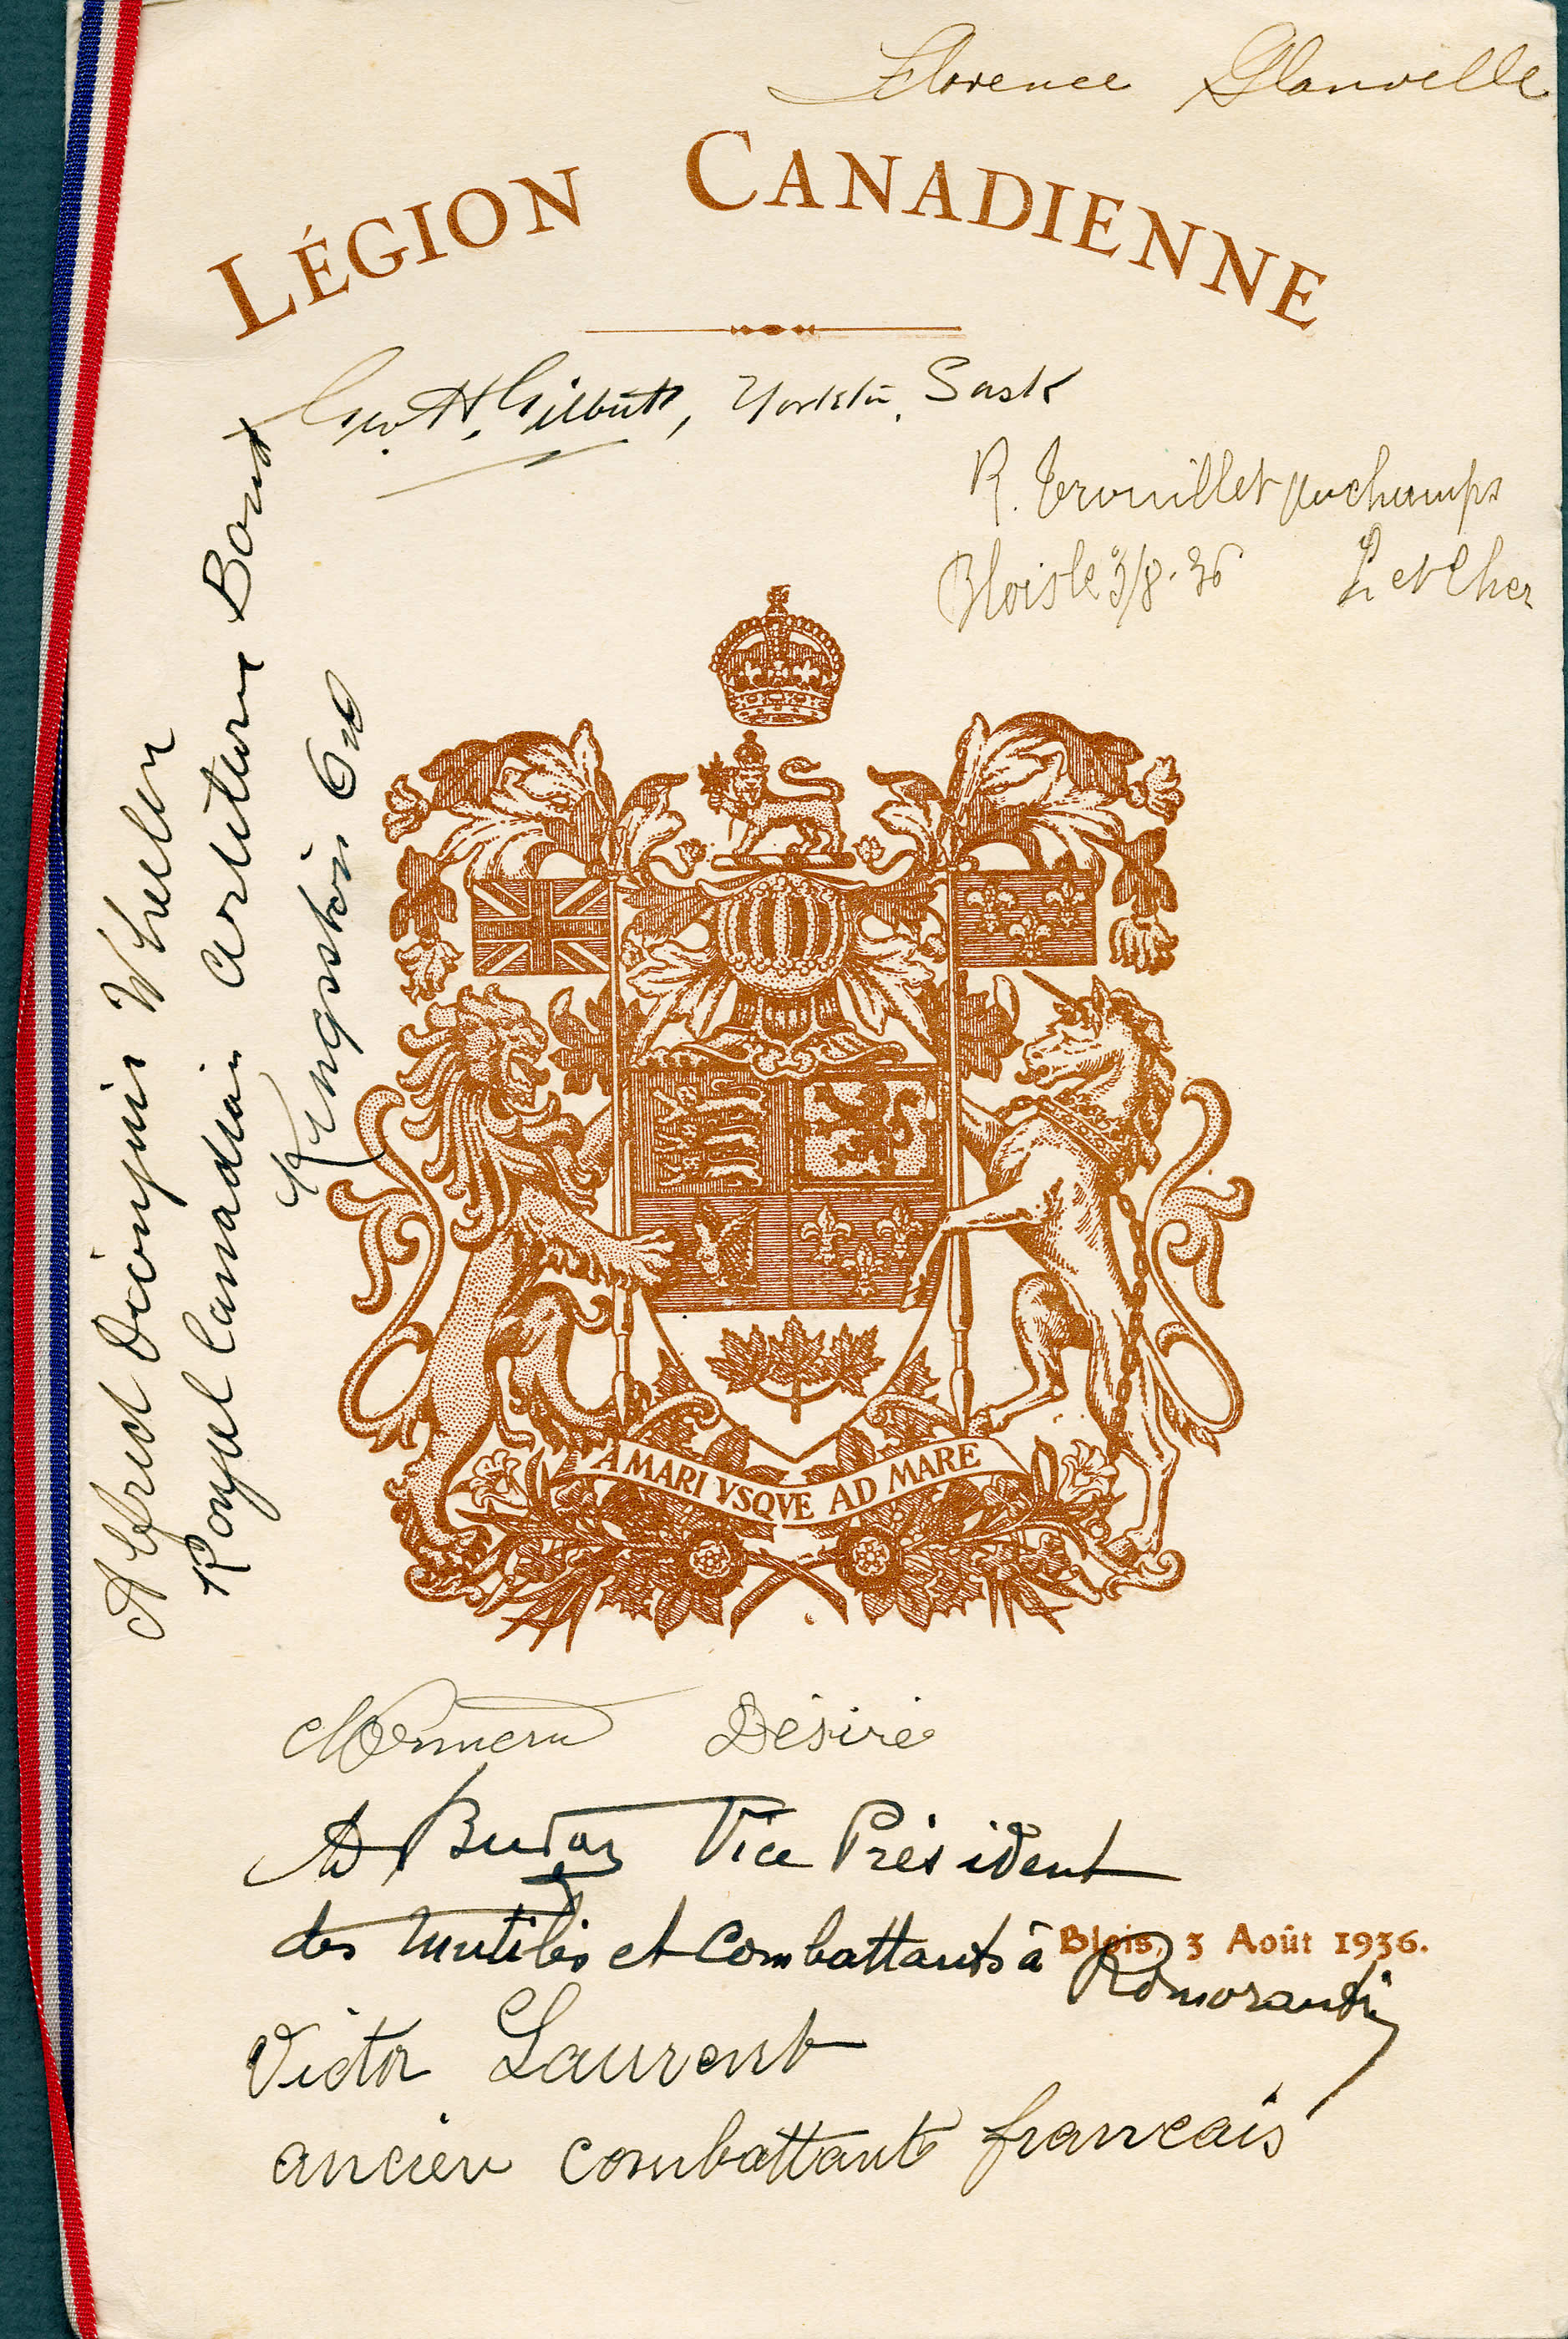 Florence Glanville
LÉGION CANADIENNE
Geo. H. Gilbert, Yorkton, Sask
R. Trouillet
Blois le 3/8.36 L et Cher
Alfred Whelen
Royal Canadian Artillery Band
Kingston Ont
A MARI VSQVE AD MARE
Désiré
Vice Président
des Mutilés et Combattants à Romorantin
Blois, 3 Août 1936.
Victor Laurent
ancien combattant francais